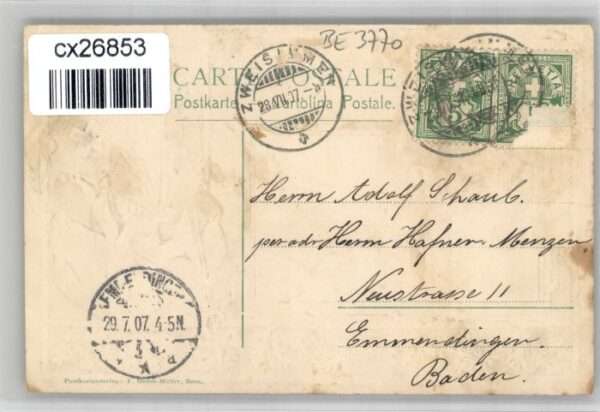 cx26853
BE 3770
CARTE POSTALE
Postkarte Cartolina Postale.
ZWEISIMMEN
28.VII.07
Herrn Adolf Schaub.
per adr Herrn Hafner Menzer
Neustrasse 11
Emmendingen.
Baden.
EMMENDINGEN
29.7.07. 4-5N.